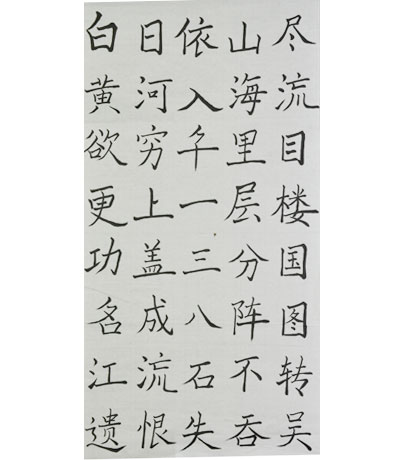 白日依山尽
黄河入海流
欲穷千里目
更上一层楼
功盖三分国
名成八阵图
江流石不转
遗恨失吞吴